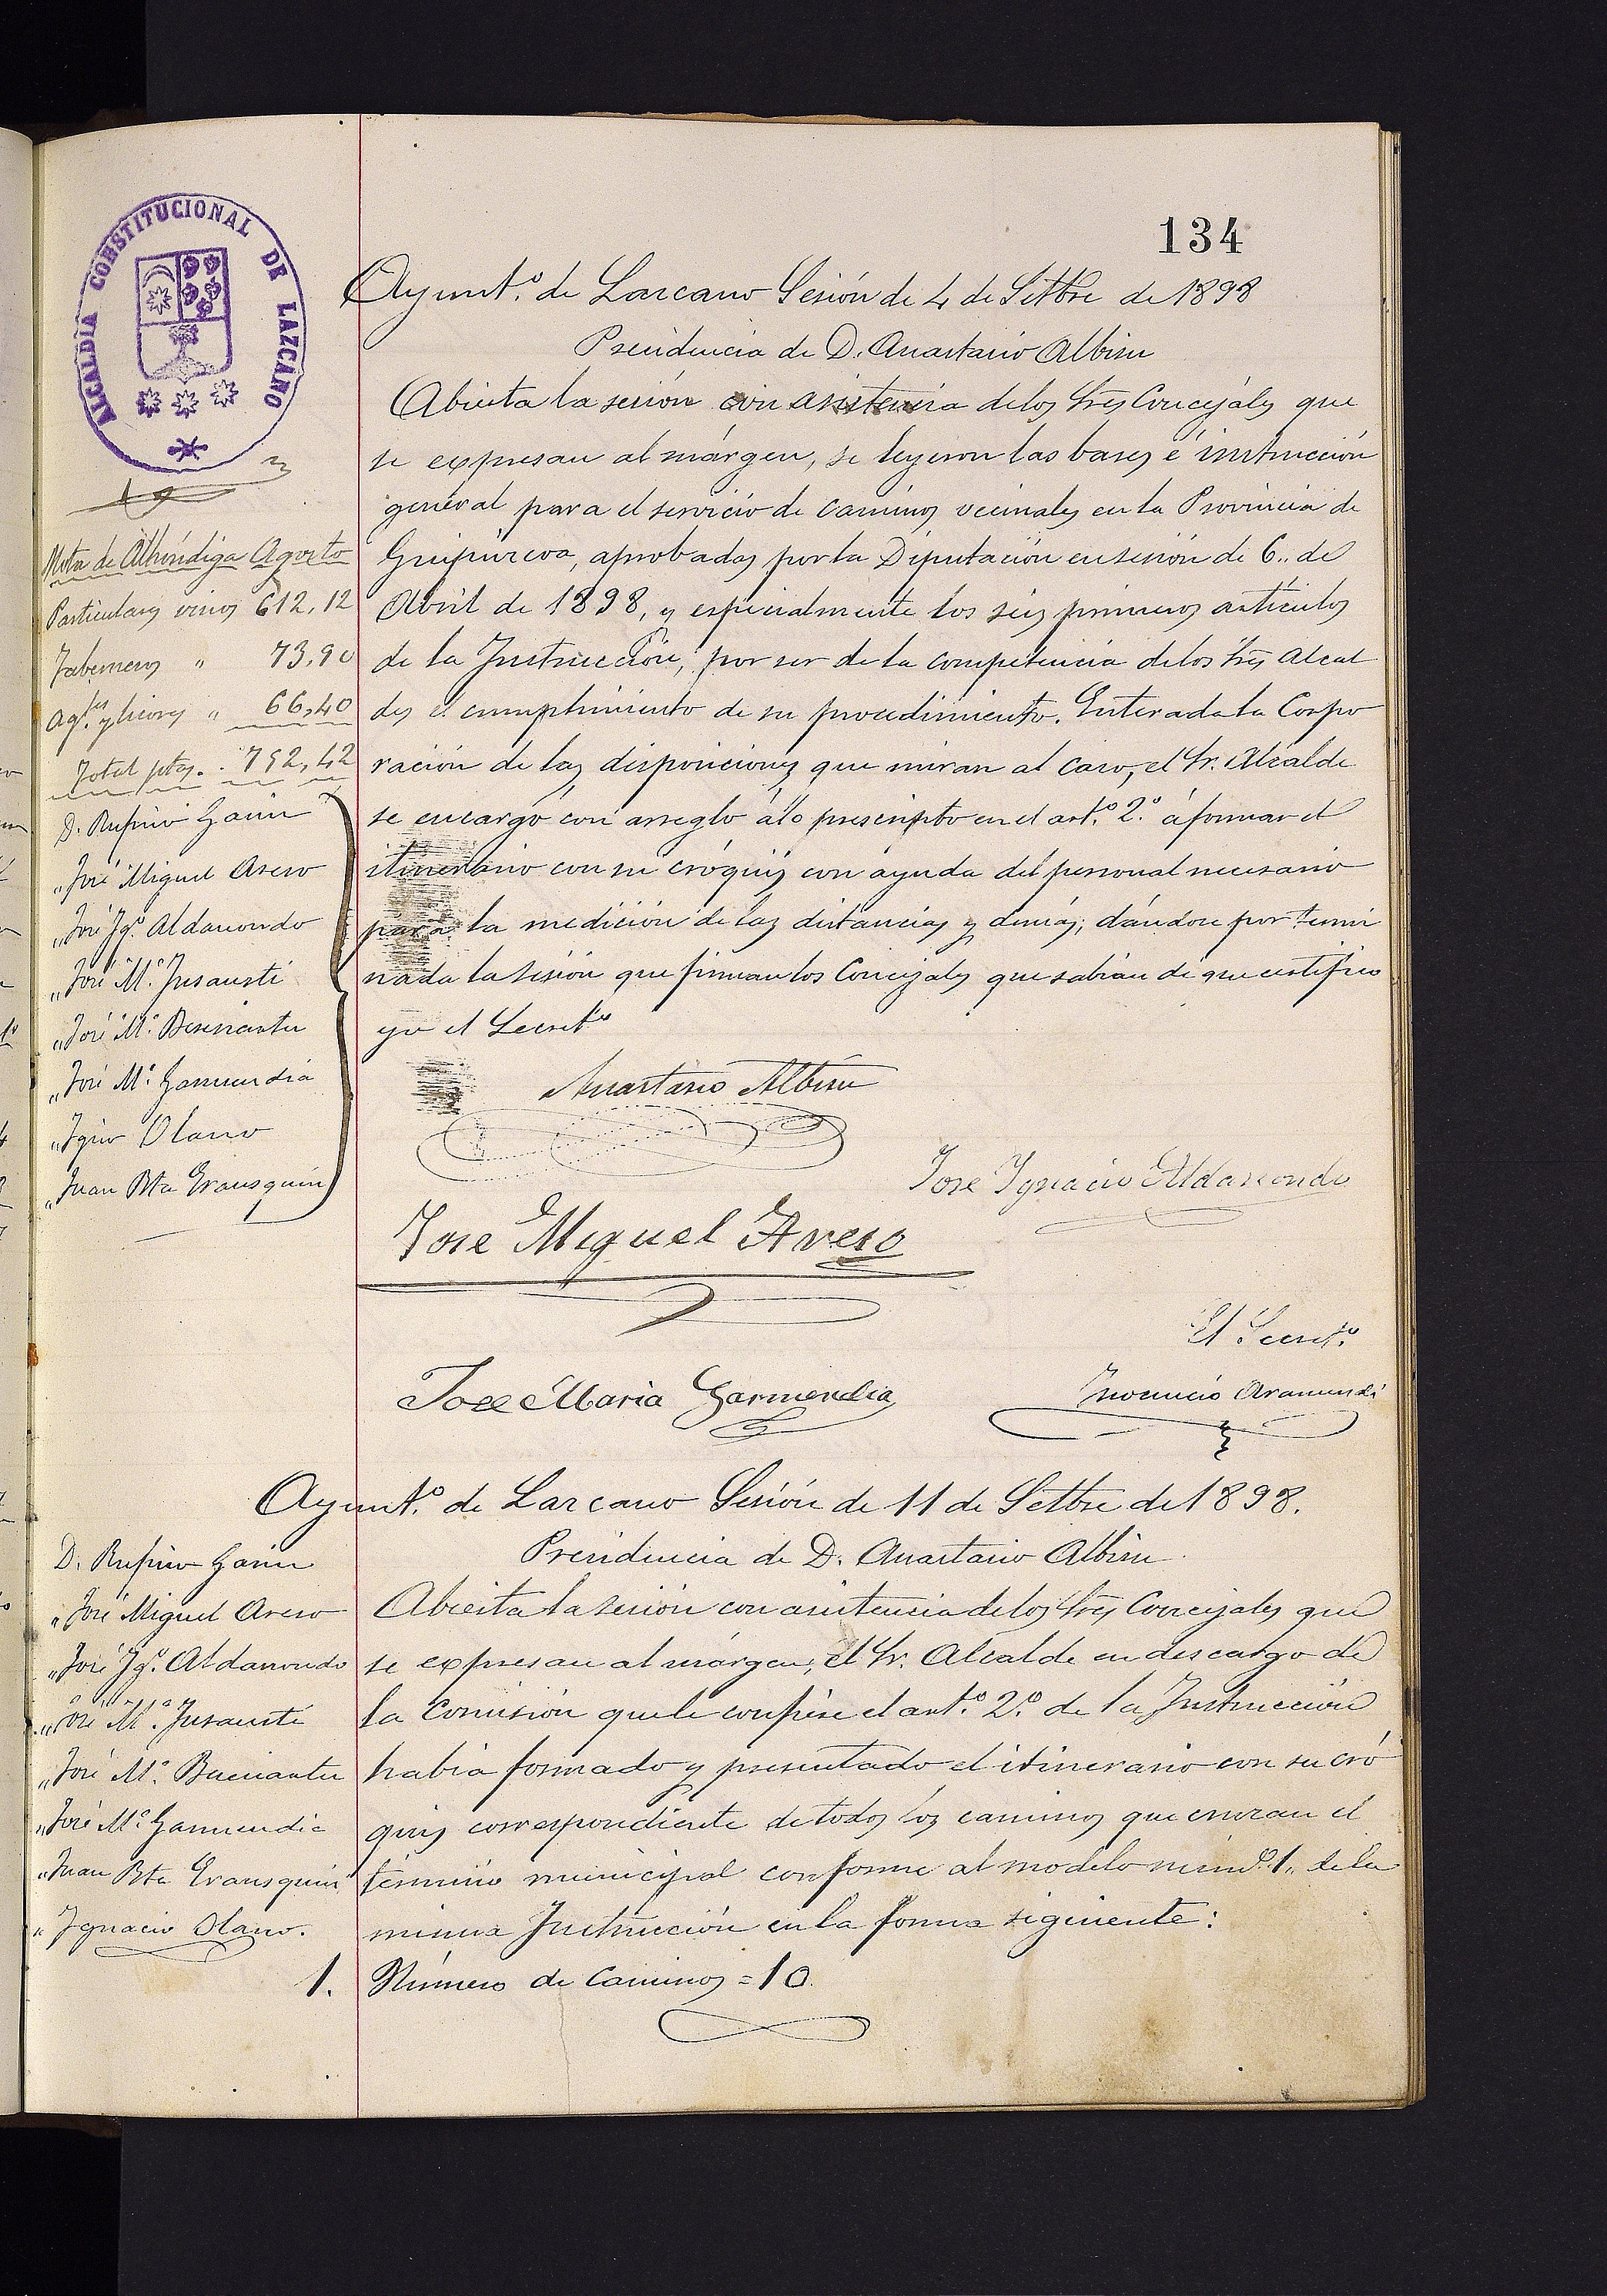 134
ALCALDIA CONSTITUCIONAL DE LAZCANO
Ayunt.º de Lazcano Sesión de 4 de Setbre de 1898
Presidencia de D. Anastasio Albisu
Abierta la sesión con asistencia de los Sres Concejales que
se expresan al márgen, se leyeron las bases é instrucción
general para el servicio de caminos vecinales en la Provincia de
Guipúzcoa, aprobadas por la Diputación en sesión de 6,, de
Abril de 1898, y especialmente los seis primeros artículos
de la Instrucción, por ser de la competencia de los Sres Alcal
des el cumplimiento de su procedimiento. Enterada la Corpo
ración de las disposiciones que miran al caso, el Sr. Alcalde
se encargó con arreglo á lo prescripto en el art.º 2.º á formar el
itinerario con su cróquis con ayuda del personal necesario
para la medición de las distancias y demás; dándose por termi
nada la sesión que firman los Concejales que sabían de que certifico
yo el Secretº
Nota de Alhóndiga Agosto
Particulares vinos 612,12
Taberneros " 73,90
Ag.tes y licores " 66,40
Total ptas. . 752,42
D. Rufino Garin
" José Miguel Aseso
" José Ig.º Aldasondo
" José M.ª Insausti
" José M.ª
" José M.ª Garmendia
" Igno Olano
" Juan Bta Erausquin
Anastasio Albisu
Jose Ignacio Aldasondo
Jose Miguel Areso
El Secretº
Jose Maria Garmendia
Inocencio Aramendi
Ayunt.º de Lazcano Sesión de 11 de Setbre de 1898.
Presidencia de D. Anastasio Albisu.
Abierta la sesión con asistencia de los Sres Concejales que
se expresan al márgen, el Sr. Alcalde en descargo de
la Comisión que le confiere el art.º 2.º de la Instrucción
había formado y presentado el itinerario con su cró
quis correspondiente de todos los caminos que cruzan el
término municipal conforme al modelo númº 1,, de la
misma Instrucción en la forma siguiente:
D. Rufino Garin
" José Miguel Areso
" José Ig.º Aldasondo
" José M.ª Insausti
" José M.ª
" José M.ª Garmendia
" Juan Bta Erausquin
" Ignacio Olano.
1. Número de Caminos = 10.